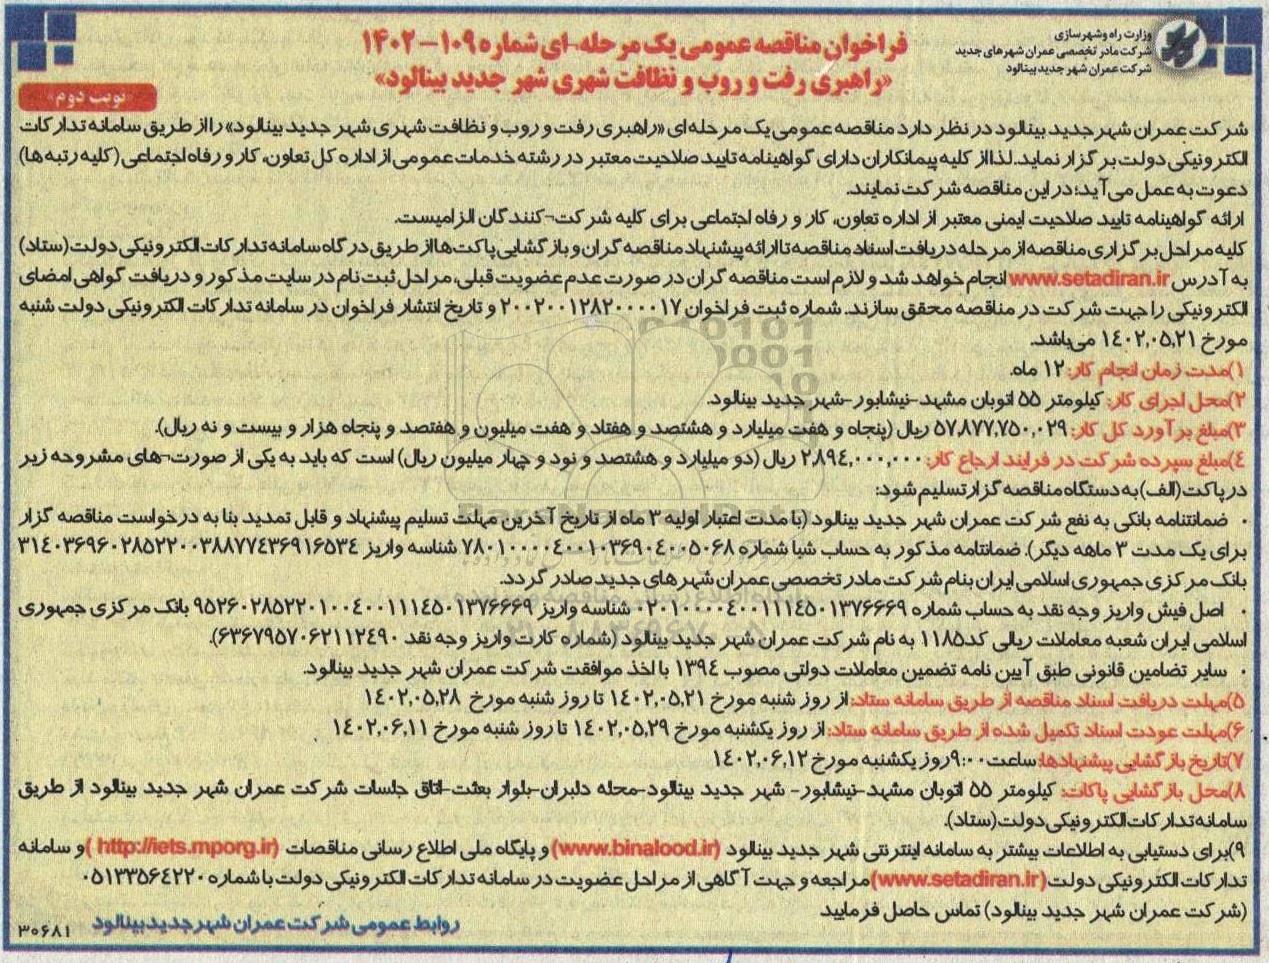 وزارت راه و شهرسازی
شرکت مادر تخصصی عمران شهرهای جدید
شرکت عمران شهر جدید بینالود
فراخوان مناقصه عمومی یک مرحله-ای شماره ۱۰۹-۱۴۰۲
«راهبری رفت و روب و نظافت شهری شهر جدید بینالود»
نوبت دوم
شرکت عمران شهر جدید بینالود در نظر دارد مناقصه عمومی یک مرحله ای «راهبری رفت و روب و نظافت شهری شهر جدید بینالود» را از طریق سامانه تدارکات
الکترونیکی دولت برگزار نماید. لذا از کلیه پیمانکاران دارای گواهینامه تایید صلاحیت معتبر در رشته خدمات عمومی از اداره کل تعاون، کار و رفاه اجتماعی (کلیه رتبه ها)
دعوت به عمل می آید؛ در این مناقصه شرکت نمایند.
ارائه گواهینامه تایید صلاحیت ایمنی معتبر از اداره تعاون، کار و رفاه اجتماعی برای کلیه شرکت¬کنندگان الزامیست.
کلیه مراحل برگزاری مناقصه از مرحله دریافت اسناد مناقصه تا ارائه پیشنهاد مناقصه گران و بازگشایی پاکت ها از طریق درگاه سامانه تدارکات الکترونیکی دولت (ستاد)
به آدرس www.setadiran.ir انجام خواهد شد و لازم است مناقصه گران در صورت عدم عضویت قبلی، مراحل ثبت نام در سایت مذکور و دریافت گواهی امضای
الکترونیکی را جهت شرکت در مناقصه محقق سازند. شماره ثبت فراخوان ۲۰۰۲۰۰۱۲۸۲۰۰۰۰۱۷ و تاریخ انتشار فراخوان در سامانه تدارکات الکترونیکی دولت شنبه
مورخ ۱۴۰۲,۰۵,۲۱ می باشد.
۱)مدت زمان انجام کار: ۱۲ ماه.
۲)محل اجرای کار: کیلومتر ۵۵ اتوبان مشهد-نیشابور-شهر جدید بینالود.
۳)مبلغ برآورد کل کار: ۵۷,۸۷۷,۷۵۰,۰۲۹ ریال (پنجاه و هفت میلیارد و هشتصد و هفتاد و هفت میلیون و هفتصد و پنجاه هزار و بیست و نه ریال).
۴)مبلغ سپرده شرکت در فرایند ارجاع کار: ۲,۸۹۴,۰۰۰,۰۰۰ ریال (دو میلیارد و هشتصد و نود و چهار میلیون ریال) است که باید به یکی از صورت¬های مشروحه زیر
در پاکت (الف) به دستگاه مناقصه گزار تسلیم شود:
• ضمانتنامه بانکی به نفع شرکت عمران شهر جدید بینالود (با مدت اعتبار اولیه ۳ ماه از تاریخ آخرین مهلت تسلیم پیشنهاد و قابل تمدید بنا به درخواست مناقصه گزار
برای یک مدت ۳ ماهه دیگر). ضمانتامه مذکور به حساب شبا شماره ۷۸۰۱۰۰۰۰۴۰۰۱۰۳۶۹۰۴۰۰۵۰۶۸ شناسه واریز ۳۱۴۰۳۶۹۶۰۲۸۵۲۲۰۰۳۸۸۷۷۴۳۶۹۱۶۵۳۴
بانک مرکزی جمهوری اسلامی ایران بنام شرکت مادر تخصصی عمران شهرهای جدید صادر گردد.
• اصل فیش واریز وجه نقد به حساب شماره ۰۲۰۱۰۰۰۰۴۰۰۱۱۱۴۵۰۱۳۷۶۶۶۹ شناسه واریز ۹۵۲۶۰۲۸۵۲۲۰۱۰۰۴۰۰۱۱۱۴۵۰۱۳۷۶۶۶۹ بانک مرکزی جمهوری
اسلامی ایران شعبه معاملات ریالی کد۱۱۸۵ به نام شرکت عمران شهر جدید بینالود (شماره کارت واریز وجه نقد ۶۳۶۷۹۵۷۰۶۲۱۱۲۴۹۰).
• سایر تضامین قانونی طبق آیین نامه تضمین معاملات دولتی مصوب ۱۳۹۴ با اخذ موافقت شرکت عمران شهر جدید بینالود.
۵)مهلت دریافت اسناد مناقصه از طریق سامانه ستاد: از روز شنبه مورخ ۱۴۰۲,۰۵,۲۱ تا روز شنبه مورخ ۱۴۰۲,۰۵,۲۸
۶)مهلت عودت اسناد تکمیل شده از طریق سامانه ستاد: از روز یکشنبه مورخ ۱۴۰۲,۰۵,۲۹ تا روز شنبه مورخ ۱۴۰۲,۰۶,۱۱
۷)تاریخ بازگشایی پیشنهادها: ساعت ۹:۰۰ روز یکشنبه مورخ ۱۴۰۲,۰۶,۱۲
۸)محل بازگشایی پاکات: کیلومتر ۵۵ اتوبان مشهد-نیشابور- شهر جدید بینالود-محله دلبران-بلوار بعثت-اتاق جلسات شرکت عمران شهر جدید بینالود از طریق
سامانه تدارکات الکترونیکی دولت (ستاد).
۹)برای دستیابی به اطلاعات بیشتر به سامانه اینترنتی شهر جدید بینالود (www.binalood.ir) و پایگاه ملی اطلاع رسانی مناقصات (http://iets.mporg.ir) و سامانه
تدارکات الکترونیکی دولت (www.setadiran.ir) مراجعه و جهت آگاهی از مراحل عضویت در سامانه تدارکات الکترونیکی دولت با شماره ۰۵۱۳۳۵۶۴۲۲۰
(شرکت عمران شهر جدید بینالود) تماس حاصل فرمایید.
روابط عمومی شرکت عمران شهر جدید بینالود
۳۰۶۸۱